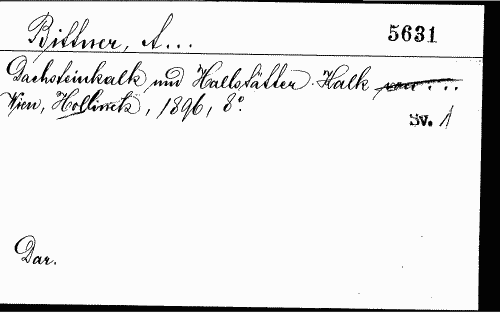 Bittner, A...
5631
Dachsteinkalk und Hallstätter Kalk von ...
Wien, Hollinek, 1896, 8°.
Sv. 1
Dar.